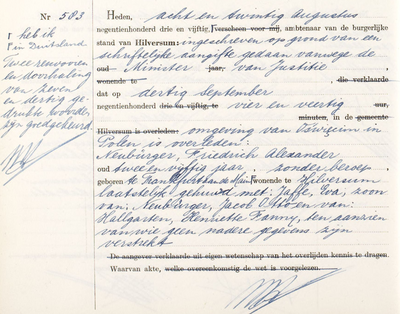 Nr 583
Heden, acht en twintig Augustus
negentienhonderd drie en vijftig, verscheen voor mij, ambtenaar van de burgerlijke
stand van Hilversum: ingeschreven op grond van een
schriftelijke aangifte gedaan vanwege de
oud Minister jaar, van Justitie
wonende te , die verklaarde
dat op dertig September
negentienhonderd drie en vijftig, te vier en veertig uur,
minuten, in de gemeente
Hilversum is overleden: omgeving van
Polen is overleden:
Neuburger, Friedrich Alexander
oud twee en vijftig jaar, zonder beroep
geboren te Frankfurt an de Main wonende te Hilversum
laatstelijk gehuwd met: Jaffé, Eva, zoon
van: Neuburger, Jacob Otto en van:
Hallgarten, Henriette Fanny, ten aanzien
van wie geen nadere gegevens zijn
verstrekt
De aangever verklaarde uit eigen wetenschap van het overlijden kennis te dragen.
Waarvan akte, welke overeenkomstig de wet is voorgelezen.
in Duitsland
Twee renvooien
en doorhaling
van zeven
en dertig ge-
drukte woorden
zijn goedgekeurd.